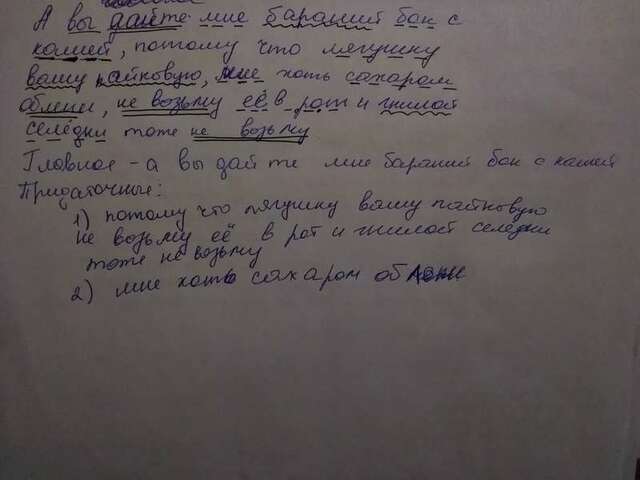 А вы дайте мне бараний бок с
кашей, потому что лягушку
вашу пайковую, мне хоть сахаром
облепи, не возьму её в рот и гнилой
селёдки тоже не возьму
Главное - а вы дайте мне бараний бок с кашей
Придаточные:
1) потому что лягушку вашу пайковую
не возьму её в рот и гнилой селедки
тоже не возьму
2) мне хоть сахаром